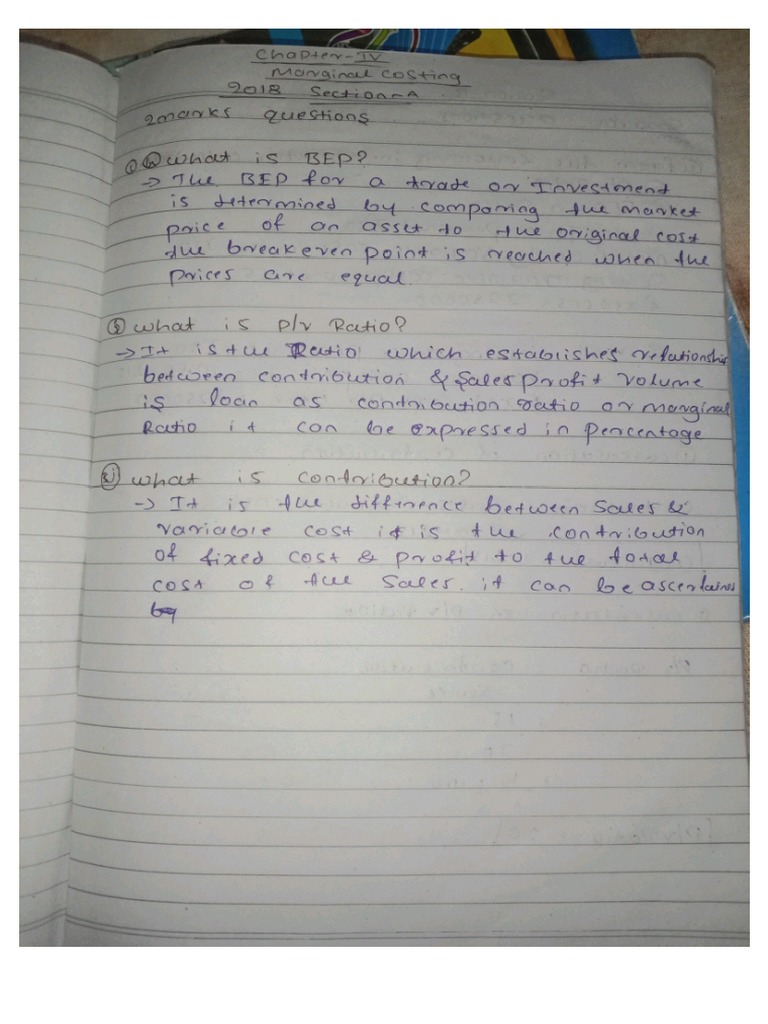 Chapter-IV
Marginal Costing
2018 Section-A
2marks questions
What is BEP?
→ The BEP for a trade or Investment
is determined by comparing the market
price of an asset to the original cost
the breakeven point is reached when the
prices are equal.
What is P/v Ratio?
→ It is the Ratio which establishes relationship
between contribution & Sales profit volume
is loan as contribution ratio or marginal
Ratio it can be expressed in percentage
What is contribution?
→ It is the diffrence between Sales &
variable cost it is the contribution
of fixed cost & profit to the total
cost of the Sales. it can be ascertained
by